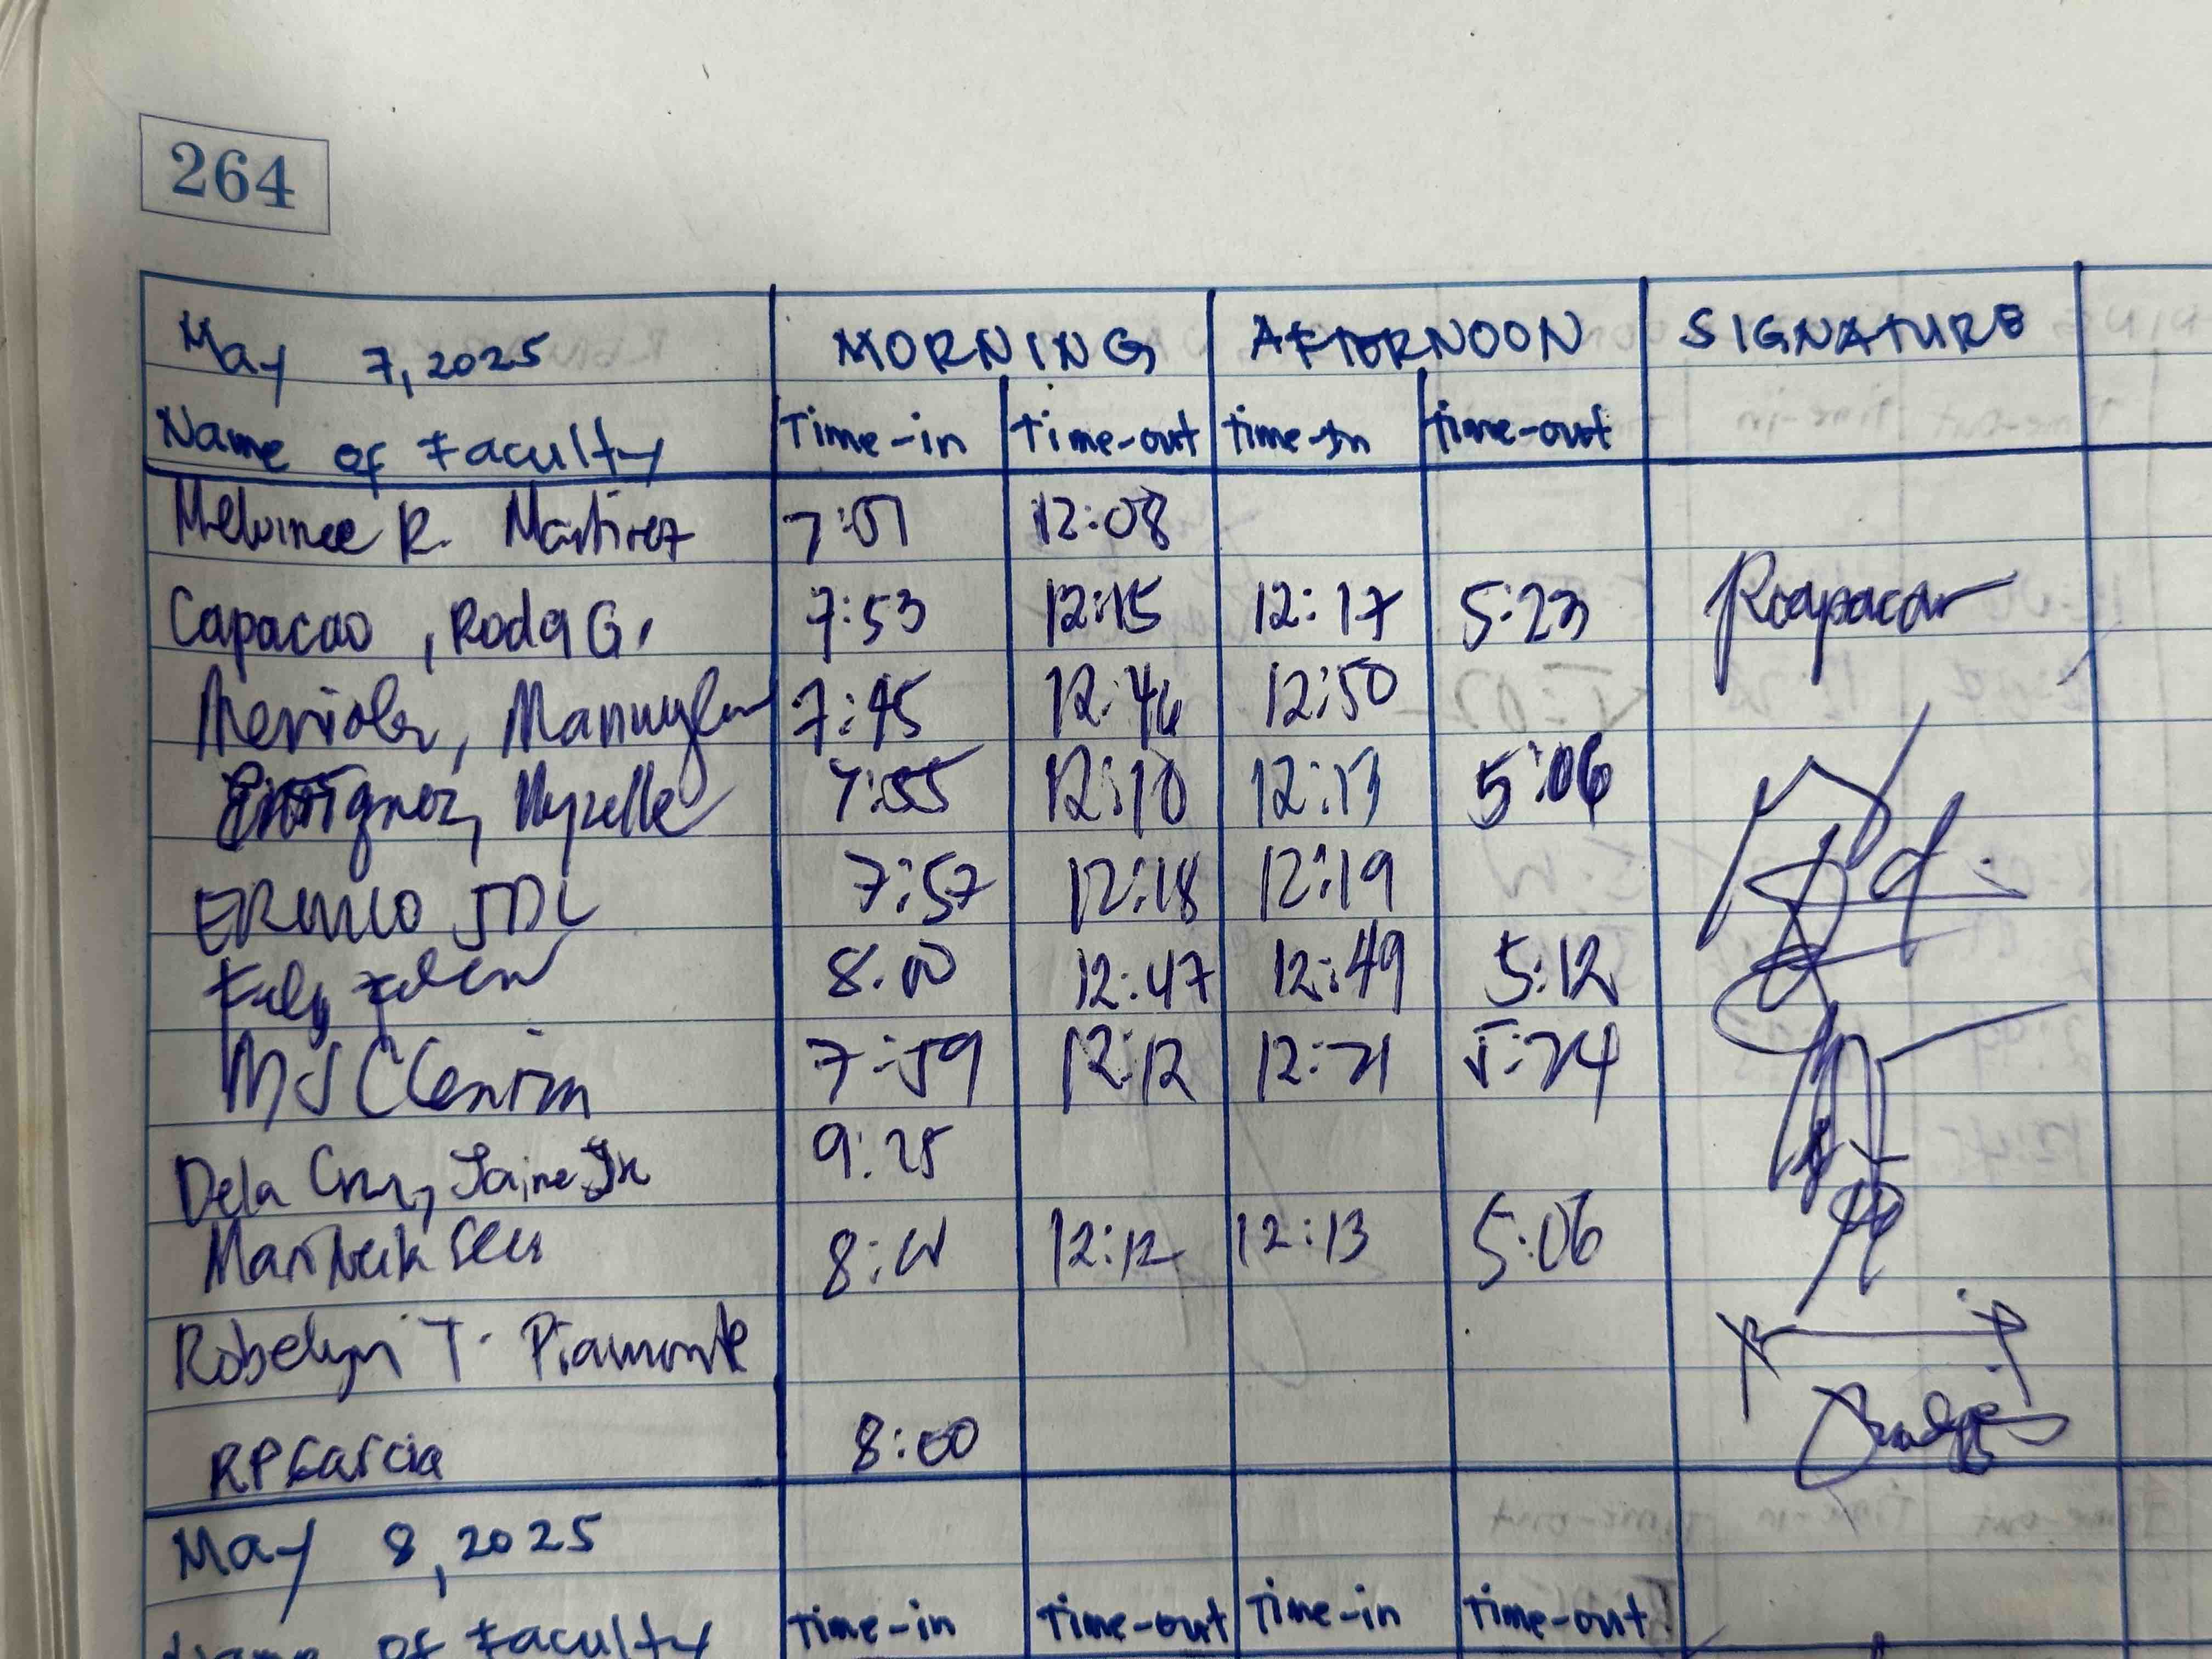 264
May 7, 2025 MORNING AFTERNOON SIGNATURE
Name of Faculty Time-in Time-out Time-In Time-out
R. Martirez 7:01 12:08
Capacao, Roda G. 7:53 12:15 12:17 5:23
7:45 12:46 12:50
Myzelle 7:55 12:10 12:13 5:06
JDL 7:57 12:18 12:19
8:00 12:47 12:49 5:12
MJ 7:59 12:12 12:21 5:24
Dela Cruz, Jaime Jr. 9:25
8:01 12:12 12:13 5:06
Robelyn T. Piamonte
RPGarcia 8:00
May 8, 2025
Name of Faculty Time-in Time-out Time-in Time-out